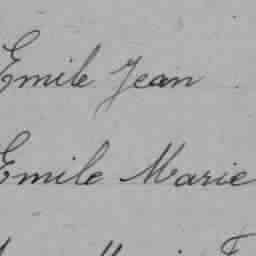 Emile Jean
Emile Marie